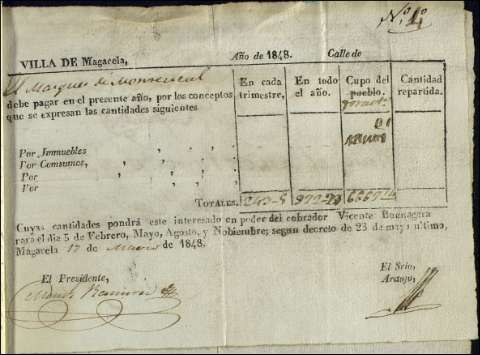 Nº 4º
VILLA DE Magacela, Año de 1848. Calle de
El Marques de
debe pagar en el presente año, por los conceptos
que se expresan las cantidades siguientes
En cada trimestre.
En todo el año.
Cupo del pueblo.
Cantidad repartida.
Por Jnmuebles
Por Consumos,
Por
Por
TOTALES.
Cuyas cantidades pondrá este interesado en poder del cobrador Vicente Buenagara
rará el dia 5 de Febrero, Mayo, Agosto, y Nobiembre; segun decreto de 23 de mayo último,
Magacela 17 de de 1848.
El Presidente,
El Srio,
Araujo,
Ramon